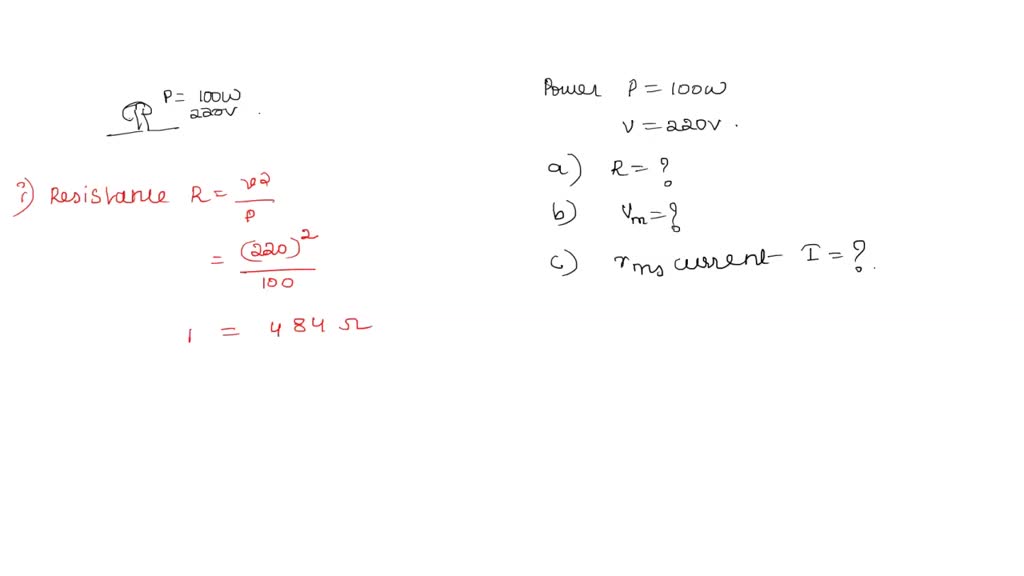 P = 100W
220V .
i) Resistance R = V2 / P
= (220)² / 100
, = 484 Ω
Power P = 100W
V = 220V .
a) R = ?
b) Vm = ?
c) rms current I = ? .